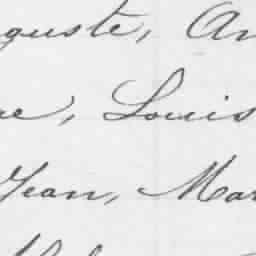 guste, An
e, Louis
Jean, Mar